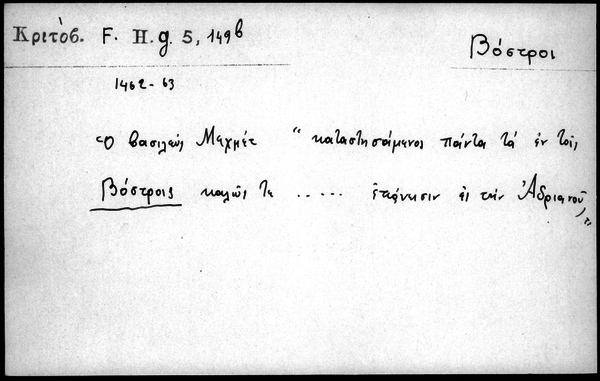 Κριτόβ. F. H. g. 5, 149b
Βόστροι
1462-63
Ὁ βασιλεὺς Μεχμὲτ "καταστησάμενος πάντα τὰ ἐν τοῖς
Βόστροις καλῶς τε ..... ἐς τὴν Ἀδριανοῦ"